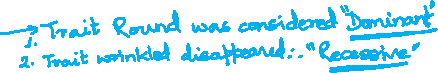 → 1. Trait Round was considered "Dominant"
2. Trait wrinkled disappeared ∴ "Recessive"